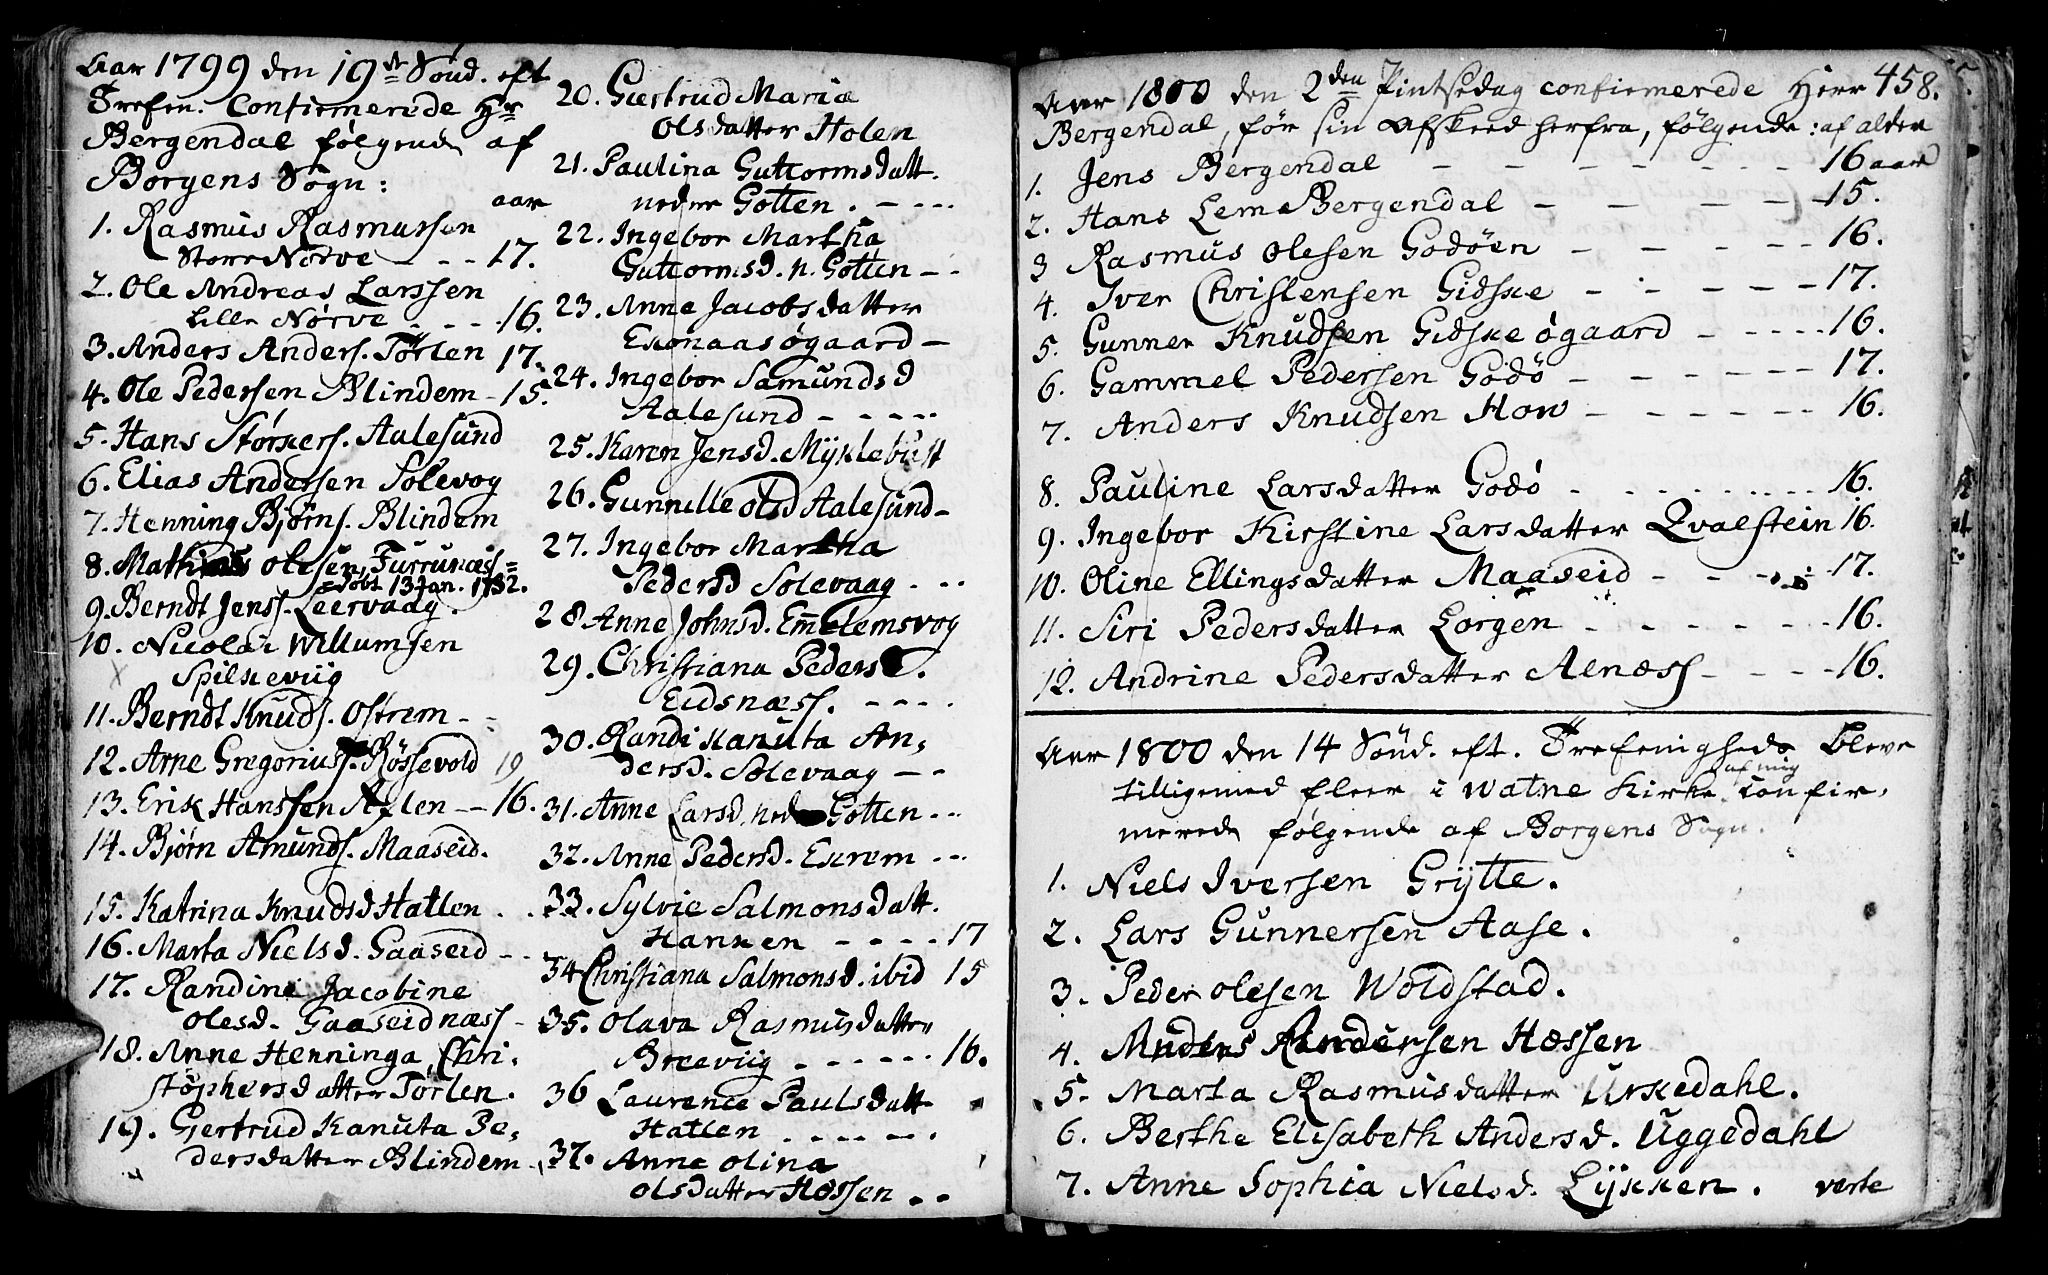 Aar 1799 den 19de Sønd. eft
Trefen. Confirmerede Hr
Bergendal følgende af
Borgens Sogn:
aar
1. Rasmus Rasmussen
Store Nørve - - - 17.
2. Ole Andreas Larssen
Lille Nørve - - - 16.
3. Anders Anders. Törlen 17.
4. Ole Pedersen Blindem - 15.
5. Hans Størkers. Aalesund
6. Elias Andersen Solevog
7. Henning Bjørns. Blindem
8. Mathias Olesen Furrunæss=
døbt 13 Jan. 1782.
9. Berndt Jenss. Leervaag.
10. Nicolai Willumsen
Spilkeviig
11. Berndt Knuds. Østrem - -
12. Arne Gregoriuss. Røssevold 19
13. Erik Hanssen Aflen - - 16.
14. Bjørn Amunds. Maaseid.
15. Katrina Knudsd Hatlen . .
16. Marta Nielsd. Gaaseid - -
17. Randine Jacobine
Olesd. Gaaseidnæss -
18. Anne Henninga Chri-
støphersdatter Törlen.
19. Gertrud Kanuta Pe-
dersdatter Blindem -
20. Giertrud Maria
Olsdatter Holen
21. Paulina Guttormsdatt.
neder Gotten . - - - -
22. Ingebor Martha
Guttormsd. n. Gotten - -
23. Anne Jacobsdatter
Exonaasøgaard -
24. Ingebor Samundsd
Aalesund - - - - -
25. Karen Jensd. Myklebust
26. Gunnille Olsd Aalesund -
27. Ingebor Martha
Pedersd Solevaag . - -
28. Anne Johnsd. Emlemsvog
29. Christiana Pedersd.
Eidsnæss. - - - -
30. Randi Kanuta An-
dersd. Solevaag - -
31. Anne Larsd. ned Gotten . . .
32. Anne Pedersd. Exrem - - -
33. Sylvie Salmonsdatt.
Hanken - - - - 17
34 Christiana Salmonsd. ibid 15
35. Olava Rasmusdatter
Breeviig - - - - - - 16.
36 Laurence Paulsdatt
Hatlen . - - - - .
37. Anne Olina
Olsdatter Hessen - -
458.
Aar 1800 den 2den Pintsedag confirmerede Herr
Bergendal, før sin Afskeed herfra, følgende: af alder
1. Jens Bergendal - - - - - - - 16 aar
2. Hans Lem Bergendal - - - - - 15.
3 Rasmus Olesen Godøen - - - - - 16.
4. Iver Christensen Gidske - - - - - 17.
5. Gunner Knudsen Gidske øgaard - - - - - 16.
6. Gammel Pedersen Godø - - - - - - 17.
7. Anders Knudsen How - - - - - - 16.
8. Pauline Larsdatter Godø - - - - - - - - 16.
9. Ingebor Kirstine Larsdatter Qvalstein 16.
10. Oline Ellingsdatter Maaseid - - - - - 17.
11. Siri Pedersdatter Lorgen - - - - - - 16.
12. Andrine Pedersdatter Alnæss - - - - 16.
Aar 1800 den 14 Sønd. eft. Trefenigheds bleve
tilligemed fleer i Watne Kirke af mig confir-
merede følgende af Borgens Sogn.
1. Niels Iversen Grytte.
2. Lars Gunnersen Aase.
3. Peder Olesen Woldstad.
4. Anders Andersen Hessen
5. Marta Rasmusdatter Urkedahl.
6. Berthe Elisabeth Andersd. Uggedahl
7. Anne Sophia Nielsd. Lykken . verte